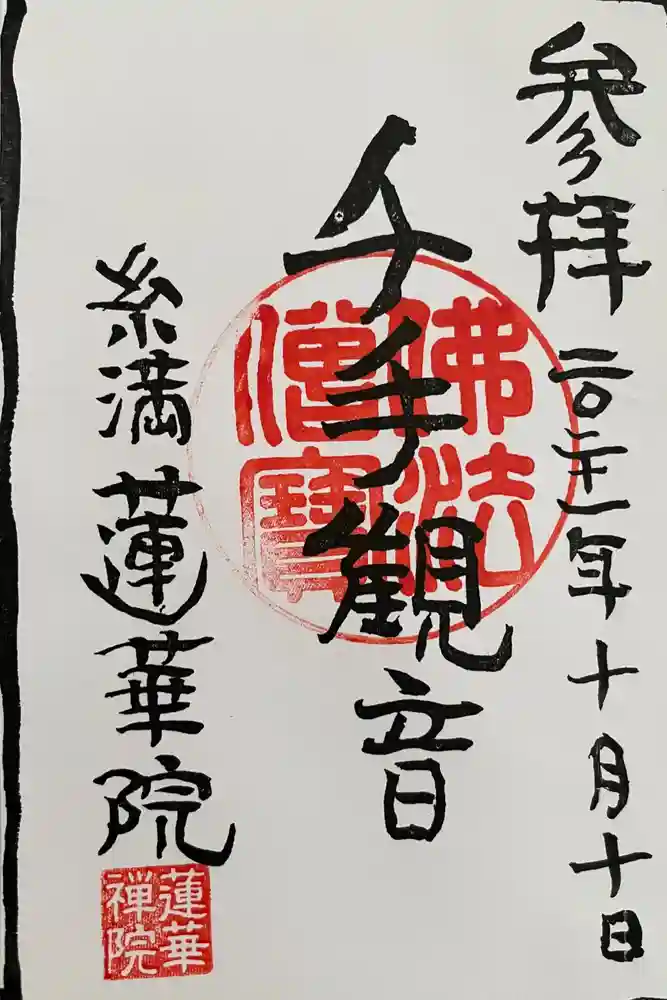 参拝 二〇二一年十月十日
千手観音
佛法僧寶
糸満 蓮華院
蓮華禅院